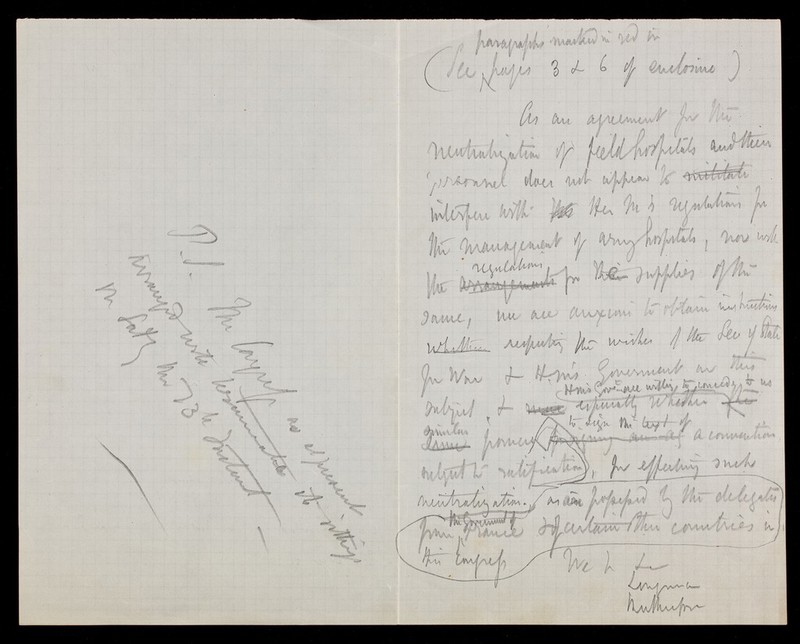 P.S. The Congress as at present
arranged will terminate its sittings
on Satdy the 23d instant -
paragraphs marked in red in
(See pages 3 & 6 of enclosure)
As an agreement for the
neutralization of field hospitals and their
personnel does not appear to militate
interfere with Her M's regulations for
the management of army hospitals, nor with
regulations
the arrangements for the supplies of the
same, we are anxious to obtain instructions
whether respecting the wishes of the Sec of State
for War & H.M's Government on this
H.M's Govt are willing to concede to us
subject, & especially whether the
to sign the text of
similar powers a convention
subject to ratification, for effecting such
neutralization, as proposed by the delegates
the Government of
from France & of certain other countries in
this Congress
We h
Longmore
Rutherford